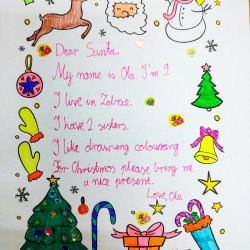 Dear Santa.
My name is Ola. I'm 9
I live in Zabrze.
I have 2 sisters.
I like drawing colouring
For Christmas please bring me
a nice present.
Love, Ola